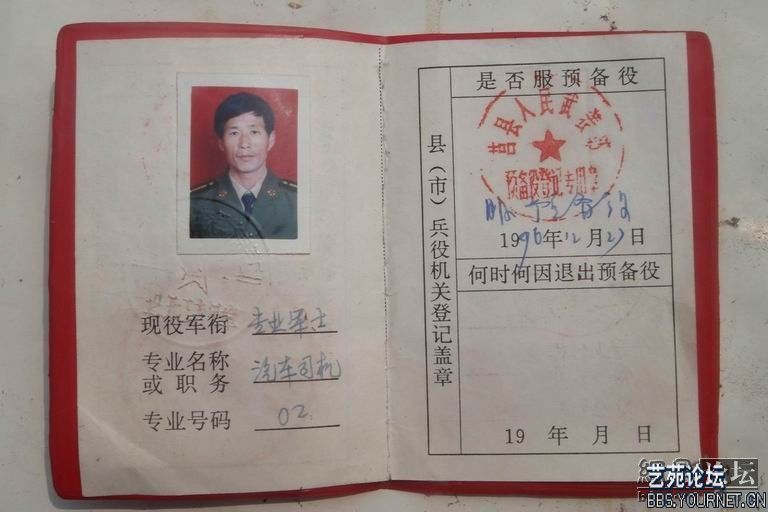 现役军衔 专业军士
专业名称
或职务 汽车司机
专业号码 02
县（市）兵役机关登记盖章
是否服预备役
莒县人民武装部
预备役登记专用章
服预备役
1996年12月27日
何时何因退出预备役
19 年 月 日
艺苑论坛
BBS.YOURNET.CN